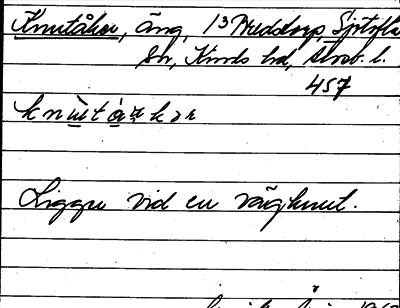 Knutåker, äng, 13 Bredstorp, Sjötofta
sn, Kinds hd, Älvsb. l.
457
Ligger vid en vägknut.